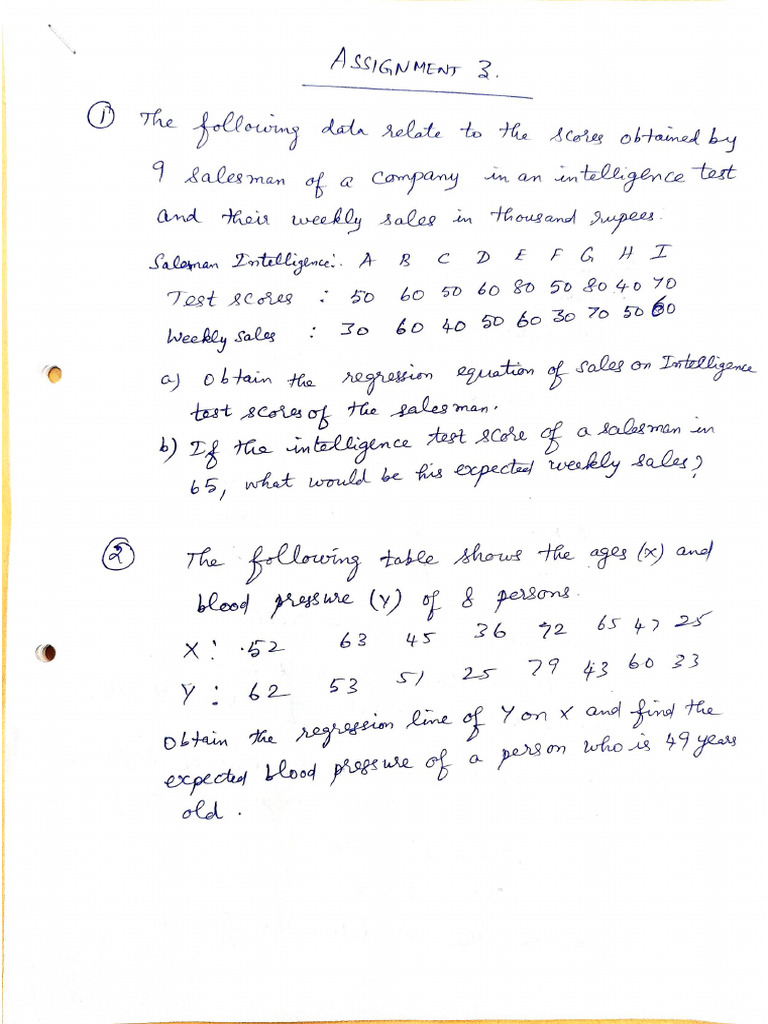 ASSIGNMENT 3.
① The following data relate to the scores obtained by
9 salesman of a company in an intelligence test
and their weekly sales in thousand rupees.
Salesman Intelligence:. A B C D E F G H I
Test scores : 50 60 50 60 80 50 80 40 70
Weekly sales : 30 60 40 50 60 30 70 50 60
a) Obtain the regression equation of sales on Intelligence
test scores of the salesman.
b) If the intelligence test score of a salesman in
65, what would be his expected weekly sales?
② The following table shows the ages (x) and
blood pressure (Y) of 8 persons.
X : 52 63 45 36 72 65 47 25
Y : 62 53 51 25 79 43 60 33
Obtain the regression line of Y on X and find the
expected blood pressure of a person who is 49 years
old.